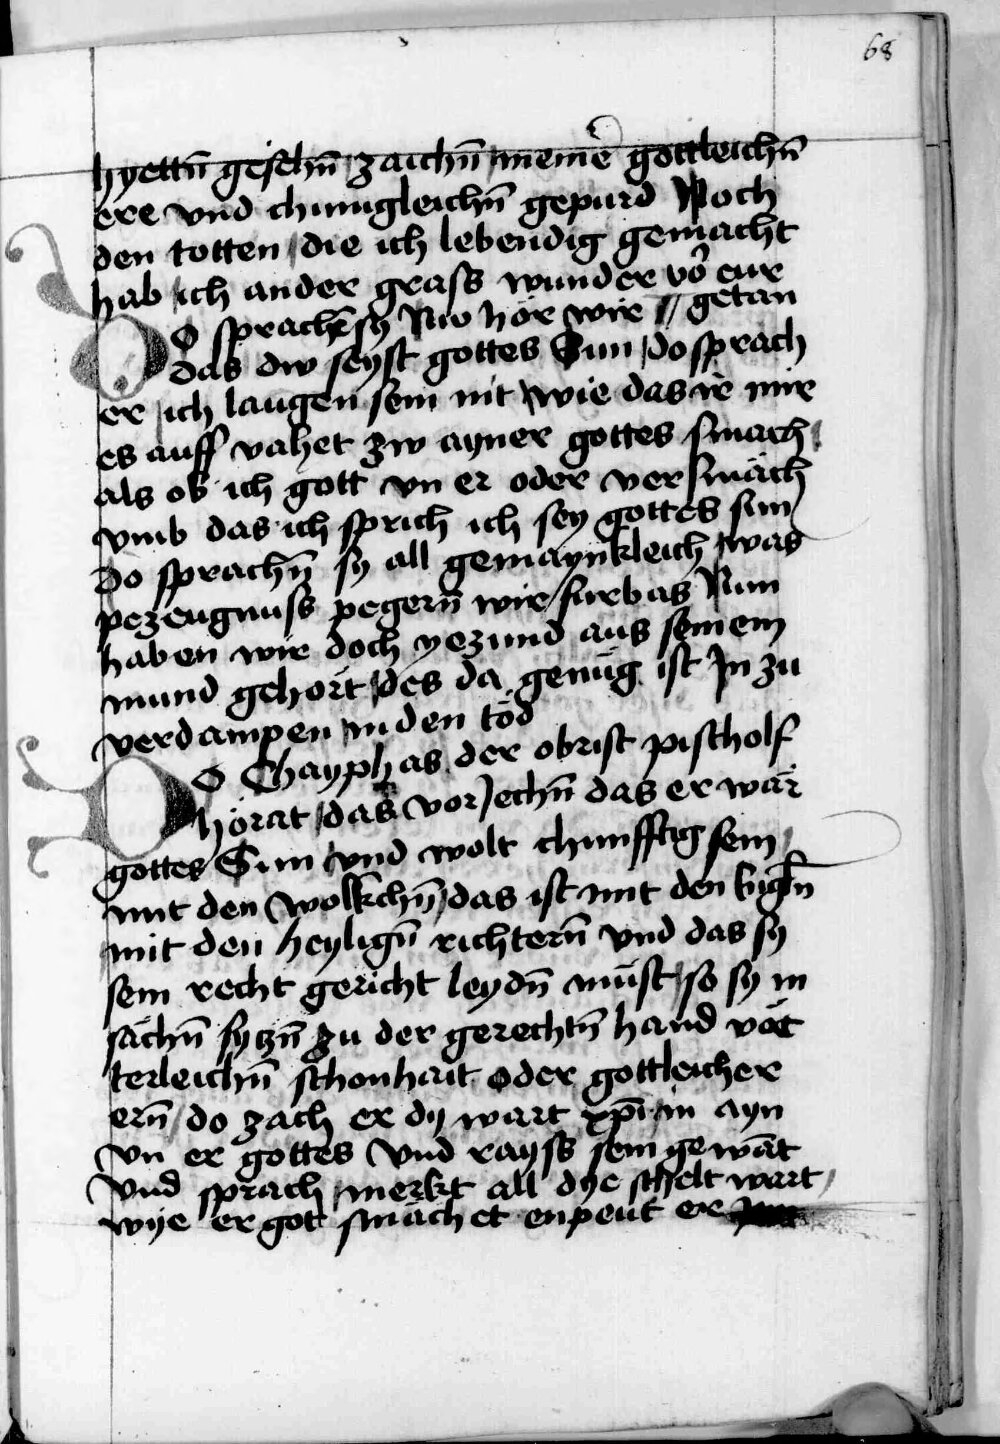 68
hyettn̄ gesehn̄ zaichn̄ meine᷑ gottleichn̄
ere vnd chunigleichn̄ gepurd Noch
den totten die ich lebendig gemacht
hab ich ander grass wunder vō eur
getan
Do sprachē sy Nw hör wir //
das dw seyst gottes Sun do sprach
er ich laugen sein nit wie das ir mir
es auff vahet zw ayner gottes smach
als ob ich gott vn er oder versmäch
vmb das ich sprich ich sey gottes sun
do sprachn̄ sy all gemaynkleich was
pezeugnuss pegern̄ wir furbas Nun
haben wir doch yezund aus seinem
mund gehört des da genüg ist In zu
verdampen in den töd
Do Chayphas der obrist pischolf
hörat das vorJechn̄ das er wär
gottes Sun vnd wolt chunfftig sein
mit den wolkchn̄ das ist mit den
mit den heylign̄ richtern̄ vnd das sy
sein recht gericht leydn̄ müst so sy in
sächn̄ sytzn̄ zu der gerechtn̄ hand vät
terleichn̄ schonhait oder gottleicher
ern̄ do zach er dy wart xp̄i in ayn
vn er gottes vnd rayss sein gewāt
vnd sprach merkt all dye schelt wart
wye er got smächet enpeut er